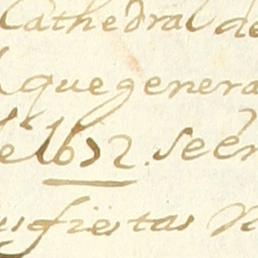 Cathedral de
que genera
de 1672. se en
fiestas